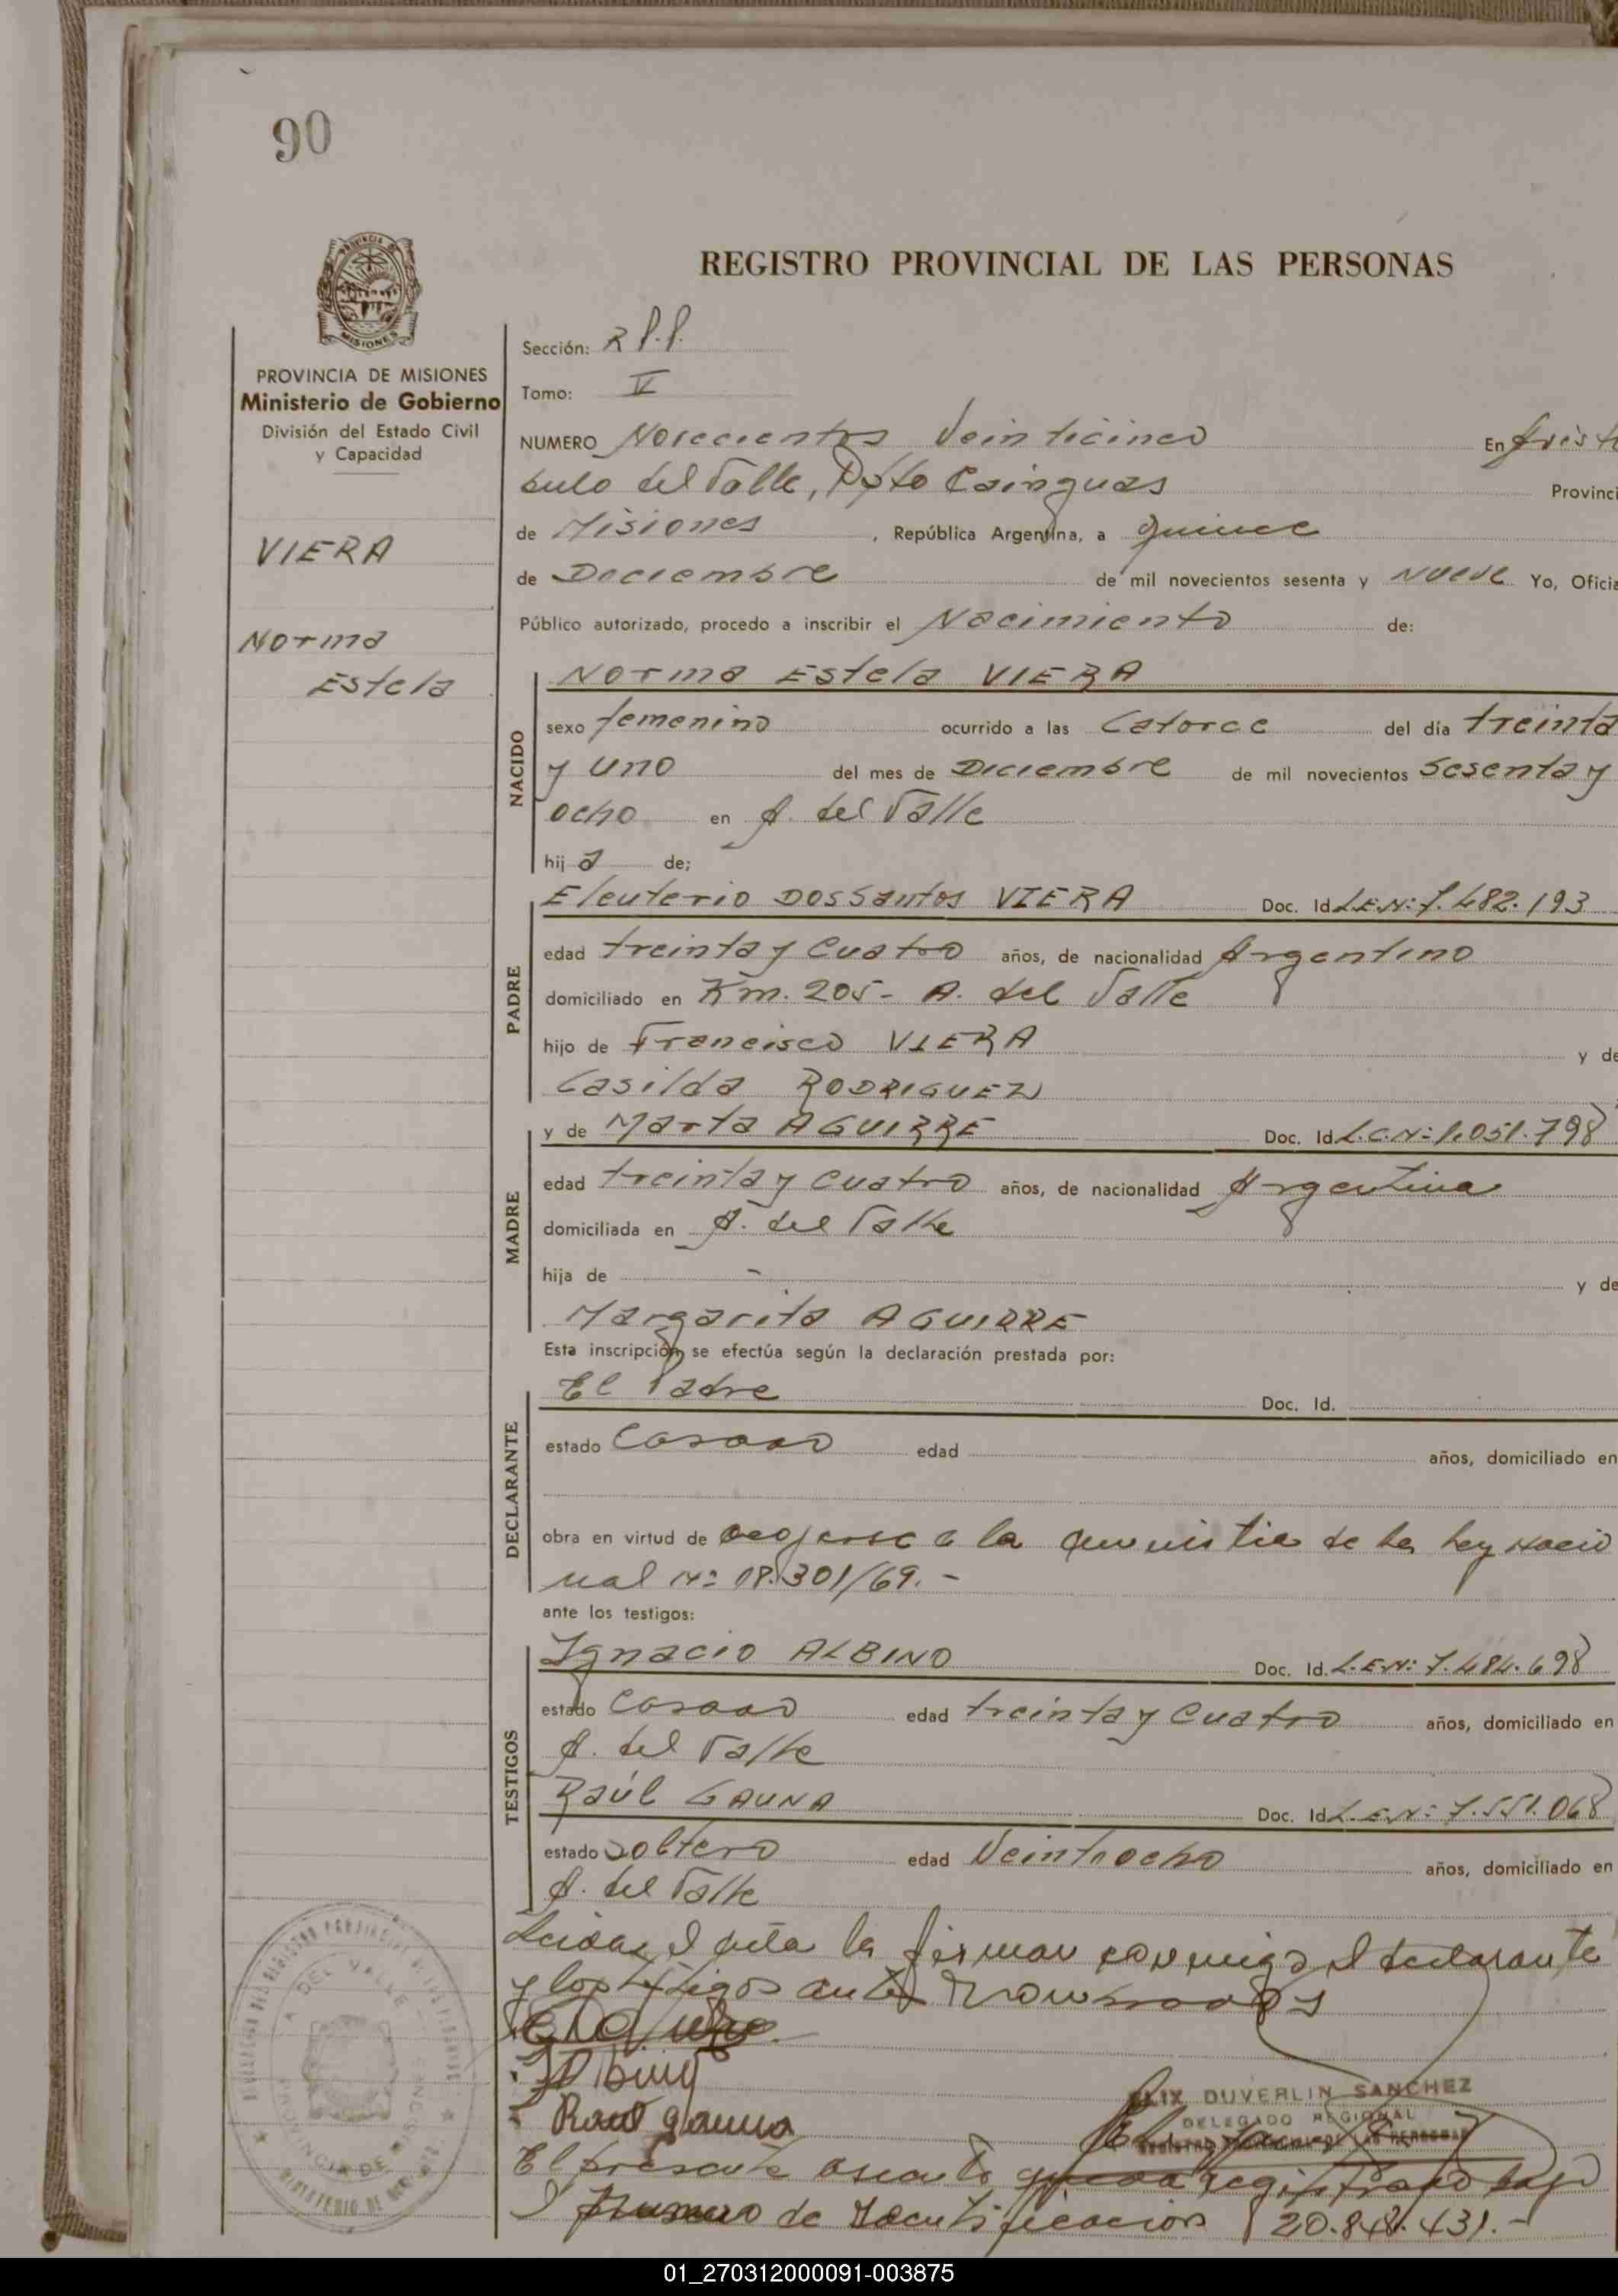 90
REGISTRO PROVINCIAL DE LAS PERSONAS
MISIONES
PROVINCIA DE MISIONES
Ministerio de Gobierno
División del Estado Civil
y Capacidad
VIERA
Norma
Estela
Sección: R P.P.
Tomo: V
NUMERO Novecientos Veinticinco En Aristó
bulo del Valle, Dpto Cainguas Provinci
de Misiones, República Argentina, a quince
de Diciembre de mil novecientos sesenta y nueve Yo, Oficia
Público autorizado, procedo a inscribir el Nacimiento de:
NACIDO
Norma Estela VIERA
sexo femenino ocurrido a las Catorce del día treinta
y uno del mes de Diciembre de mil novecientos Sesenta y
ocho en A. del Valle
hij a de;
PADRE
Eleuterio DosSantos VIERA Doc. Id L.E.Nº: 7.482.193
edad treinta y Cuatro años, de nacionalidad Argentino
domiciliado en Km. 205- A. del Valle
hijo de Francisco VIERA y de
Casilda RODRIGUEZ
MADRE
y de Marta AGUIRRE Doc. Id L.C.Nº: 1.051.798
edad treinta y Cuatro años, de nacionalidad Argentina
domiciliada en A. del Valle
hija de - y de
Margarita AGUIRRE
Esta inscripción se efectúa según la declaración prestada por:
DECLARANTE
El Padre Doc. Id.
estado Casado edad años, domiciliado en
obra en virtud de acogerse a la amnistia de la Ley Nacio
nal Nº 18.301/69.-
ante los testigos:
TESTIGOS
Ignacio ALBINO Doc. Id. L.E.Nº: 7.484.698
estado Casado edad treinta y Cuatro años, domiciliado en
A. del Valle
Raúl GAUNA Doc. Id L.E.Nº: 7.551.068
estado Soltero edad Veintiocho años, domiciliado en
A. del Valle
Leida el acta la firman conmigo el declarante
y los testigos antes nombrados
Raul Gauna
FELIX DUVERLIN SANCHEZ
DELEGADO REGIONAL
REGISTRO PROVINCIAL DE LAS PERSONAS
El presente asiento queda registrado bajo
el Numero de Identificacion 20.848.431.-
01_270312000091-003875